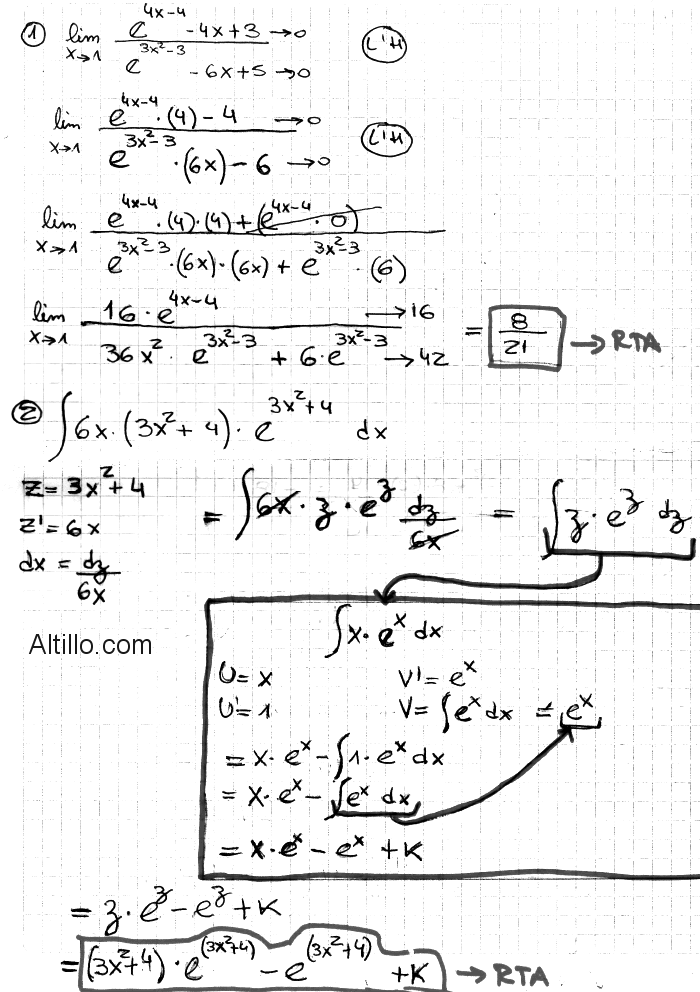 ① lim x→1 (e^(4x-4) - 4x + 3 → 0) / (e^(3x²-3) - 6x + 5 → 0) (L'H)
lim x→1 (e^(4x-4) · (4) - 4 → 0) / (e^(3x²-3) · (6x) - 6 → 0) (L'H)
lim x→1 (e^(4x-4) · (4) · (4) + (e^(4x-4) · 0)) / (e^(3x²-3) · (6x) · (6x) + e^(3x²-3) · (6))
lim x→1 (16 · e^(4x-4) → 16) / (36x² · e^(3x²-3) + 6 · e^(3x²-3) → 42) = 8/21 → RTA
② ∫ 6x · (3x² + 4) · e^(3x²+4) dx
z = 3x² + 4
z' = 6x
dx = dz/6x
= ∫ 6x · z · e^z dz/6x = ∫ z · e^z dz
Altillo.com
∫ x · e^x dx
U = x V' = e^x
U' = 1 V = ∫ e^x dx = e^x
= x · e^x - ∫ 1 · e^x dx
= x · e^x - ∫ e^x dx
= x · e^x - e^x + K
= z · e^z - e^z + K
= (3x²+4) · e^(3x²+4) - e^(3x²+4) + K → RTA